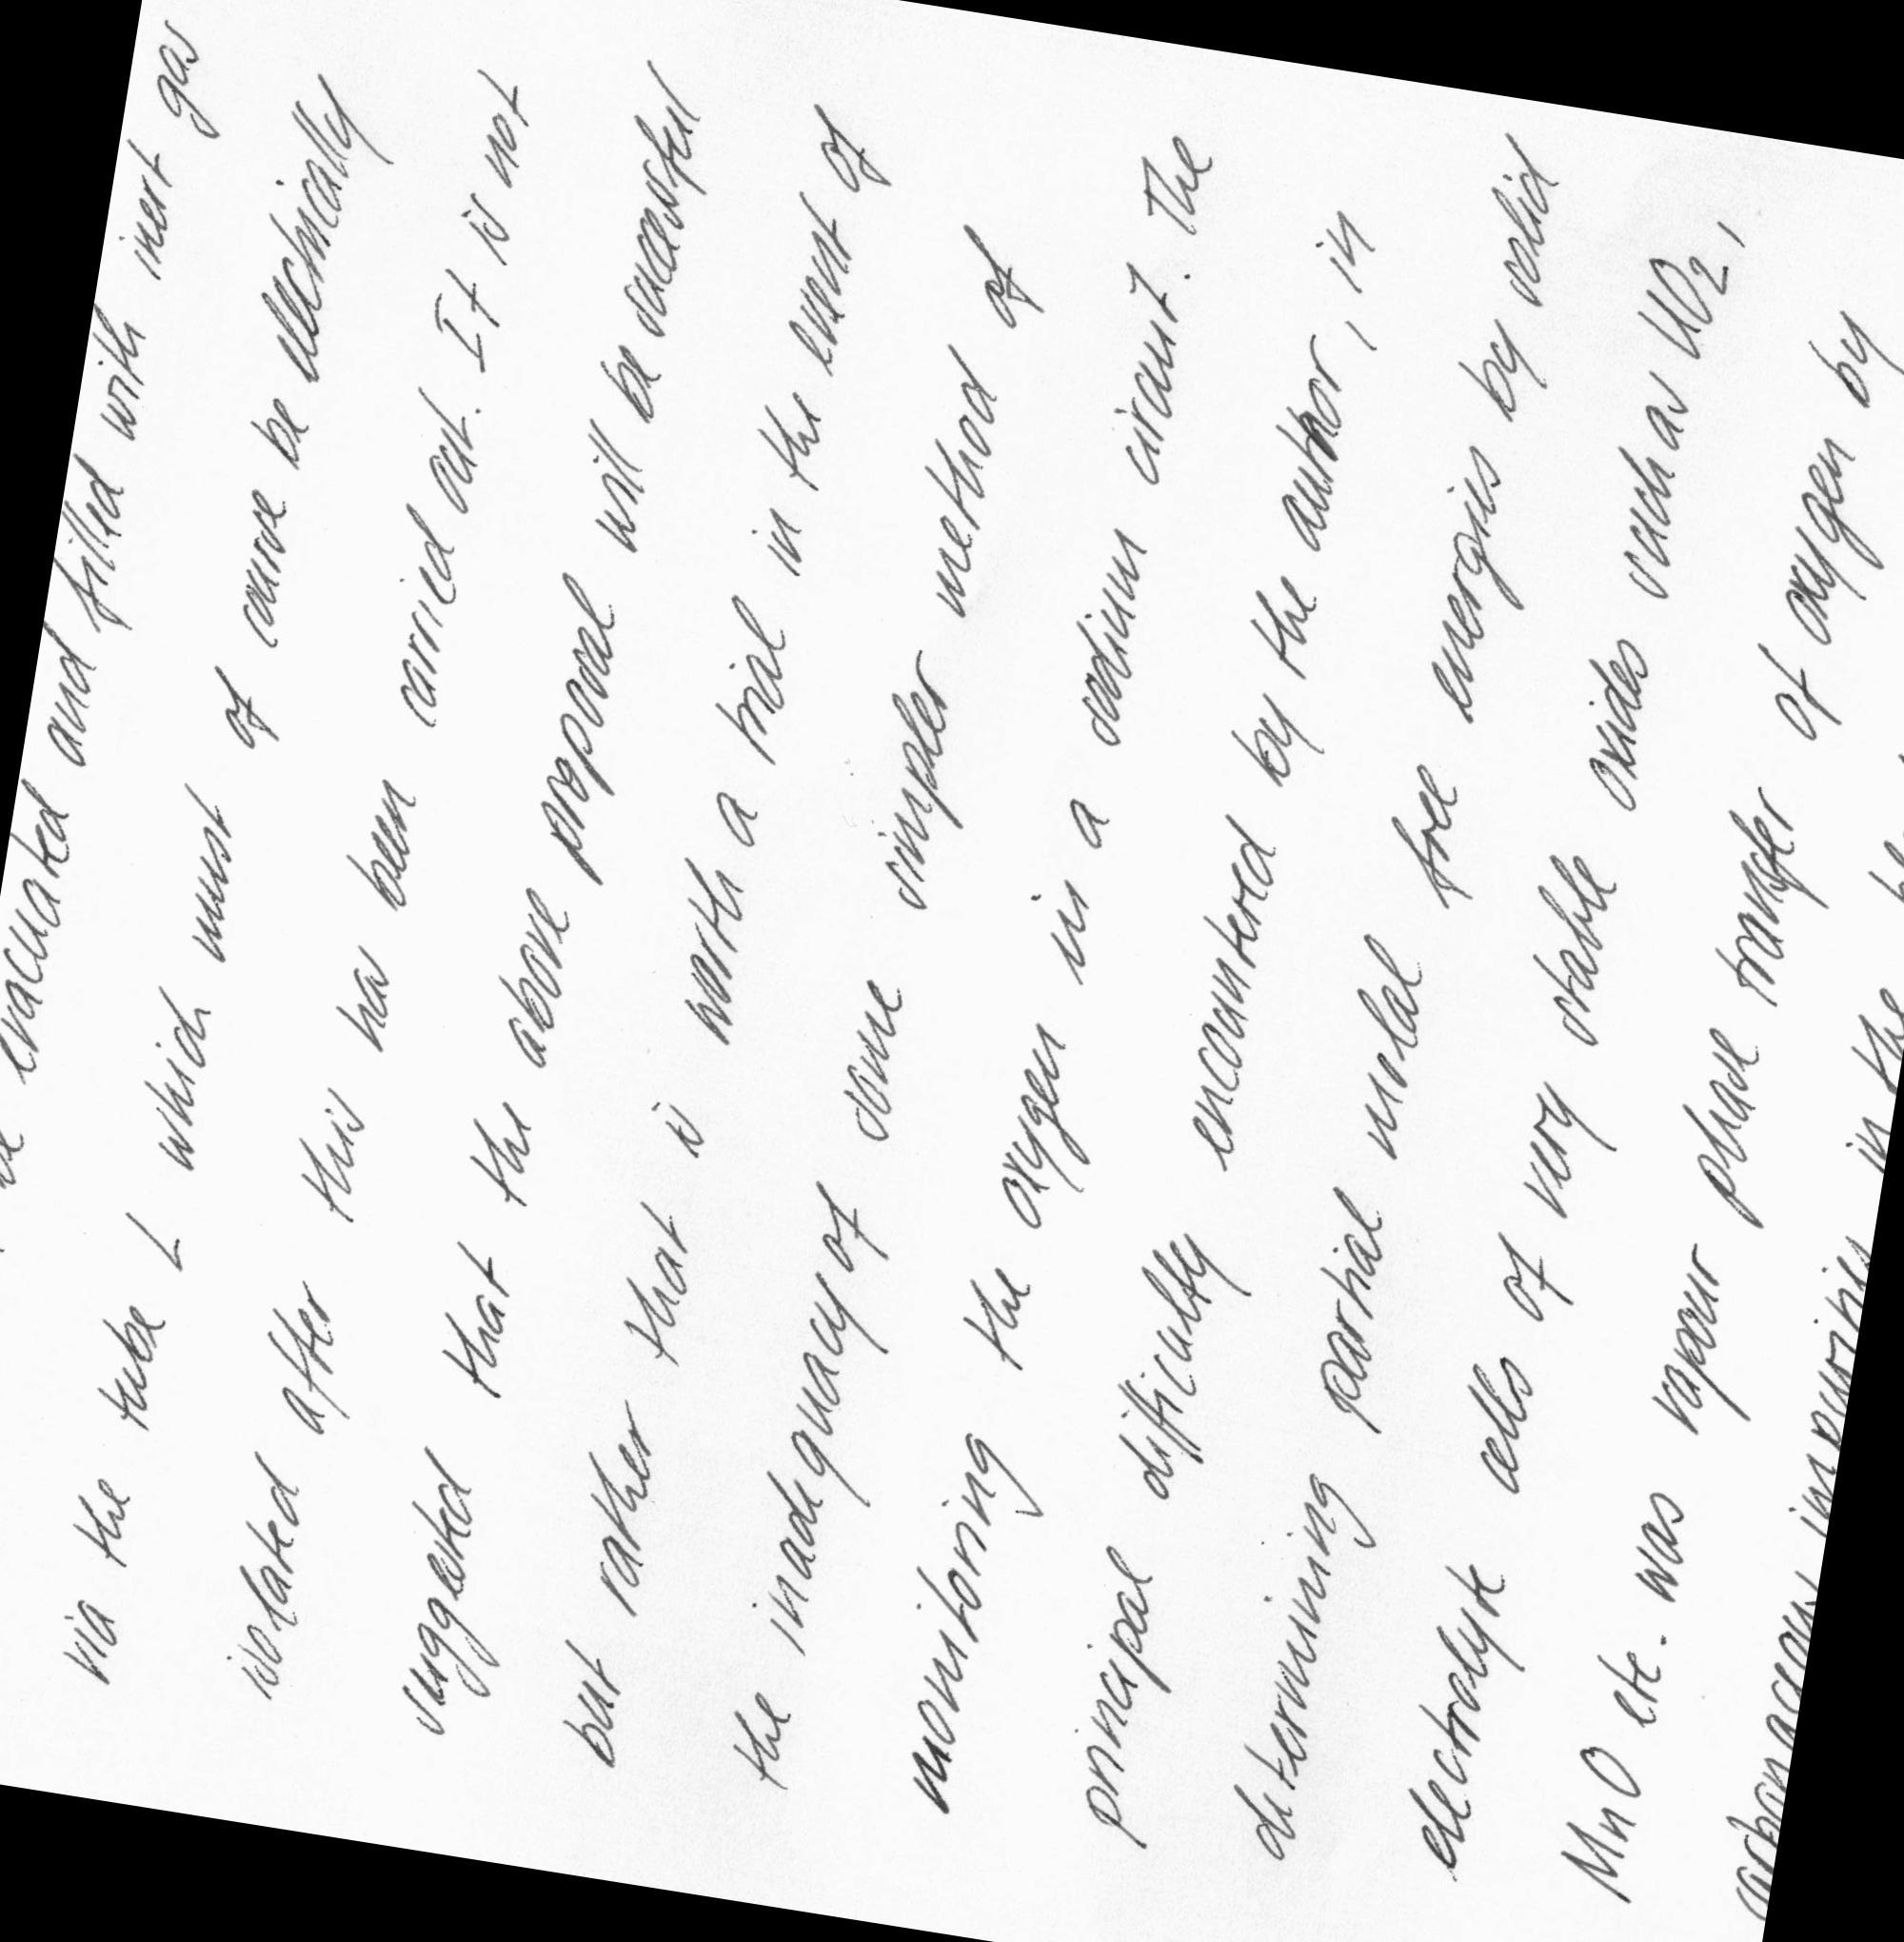 evacuated and filled with inert gas
via the tube L which must of course be electrically
isolated after this has been carried out. It is not
suggested that the above proposal will be successful
but rather that is worth a trial in the event of
the inadequacy of some simpler method of
monitoring the oxygen in a sodium circuit. The
principal difficulty encountered by the author, in
determining partial molal free energies by solid
electrolyte cells of very stable oxides such as UO2,
MnO etc. was vapour phase transfer of oxygen by
carbonaceous impurities in the